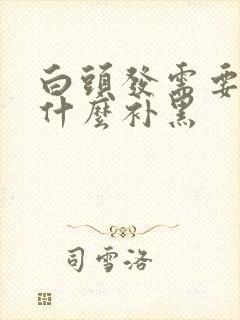 白頭發需要
什麼补黑
司雪洛